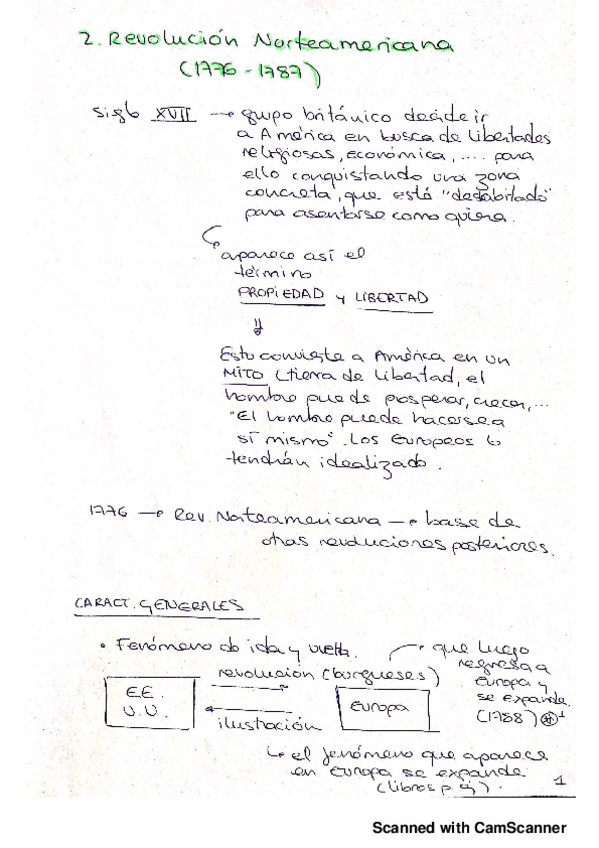 2. Revolución Norteamericana
(1776 - 1787)
siglo XVII → grupo británico decide ir
a América en busca de libertades
religiosas, económica, .... para
ello conquistando una zona
concreta, que está "deshabitado"
para asentarse como quiera.
aparece así el
término
PROPIEDAD y LIBERTAD
Esto convierte a América en un
MITO (tierra de libertad, el
hombre puede prosperar, crecer, ...
"El hombre puede hacerse a
sí mismo". Los Europeos lo
tendrán idealizado.
1776 → Rev. Norteamericana → base de
otras revoluciones posteriores.
CARACT. GENERALES
• Fenómeno de ida y vuelta.
revolución (burgueses)
EE.
UU.
Europa
ilustración
que luego
regresa a
Europa y
se expande.
(1788) * 1
↳ el fenómeno que aparece
en Europa se expande
(libros p. ej).
1
Scanned with CamScanner